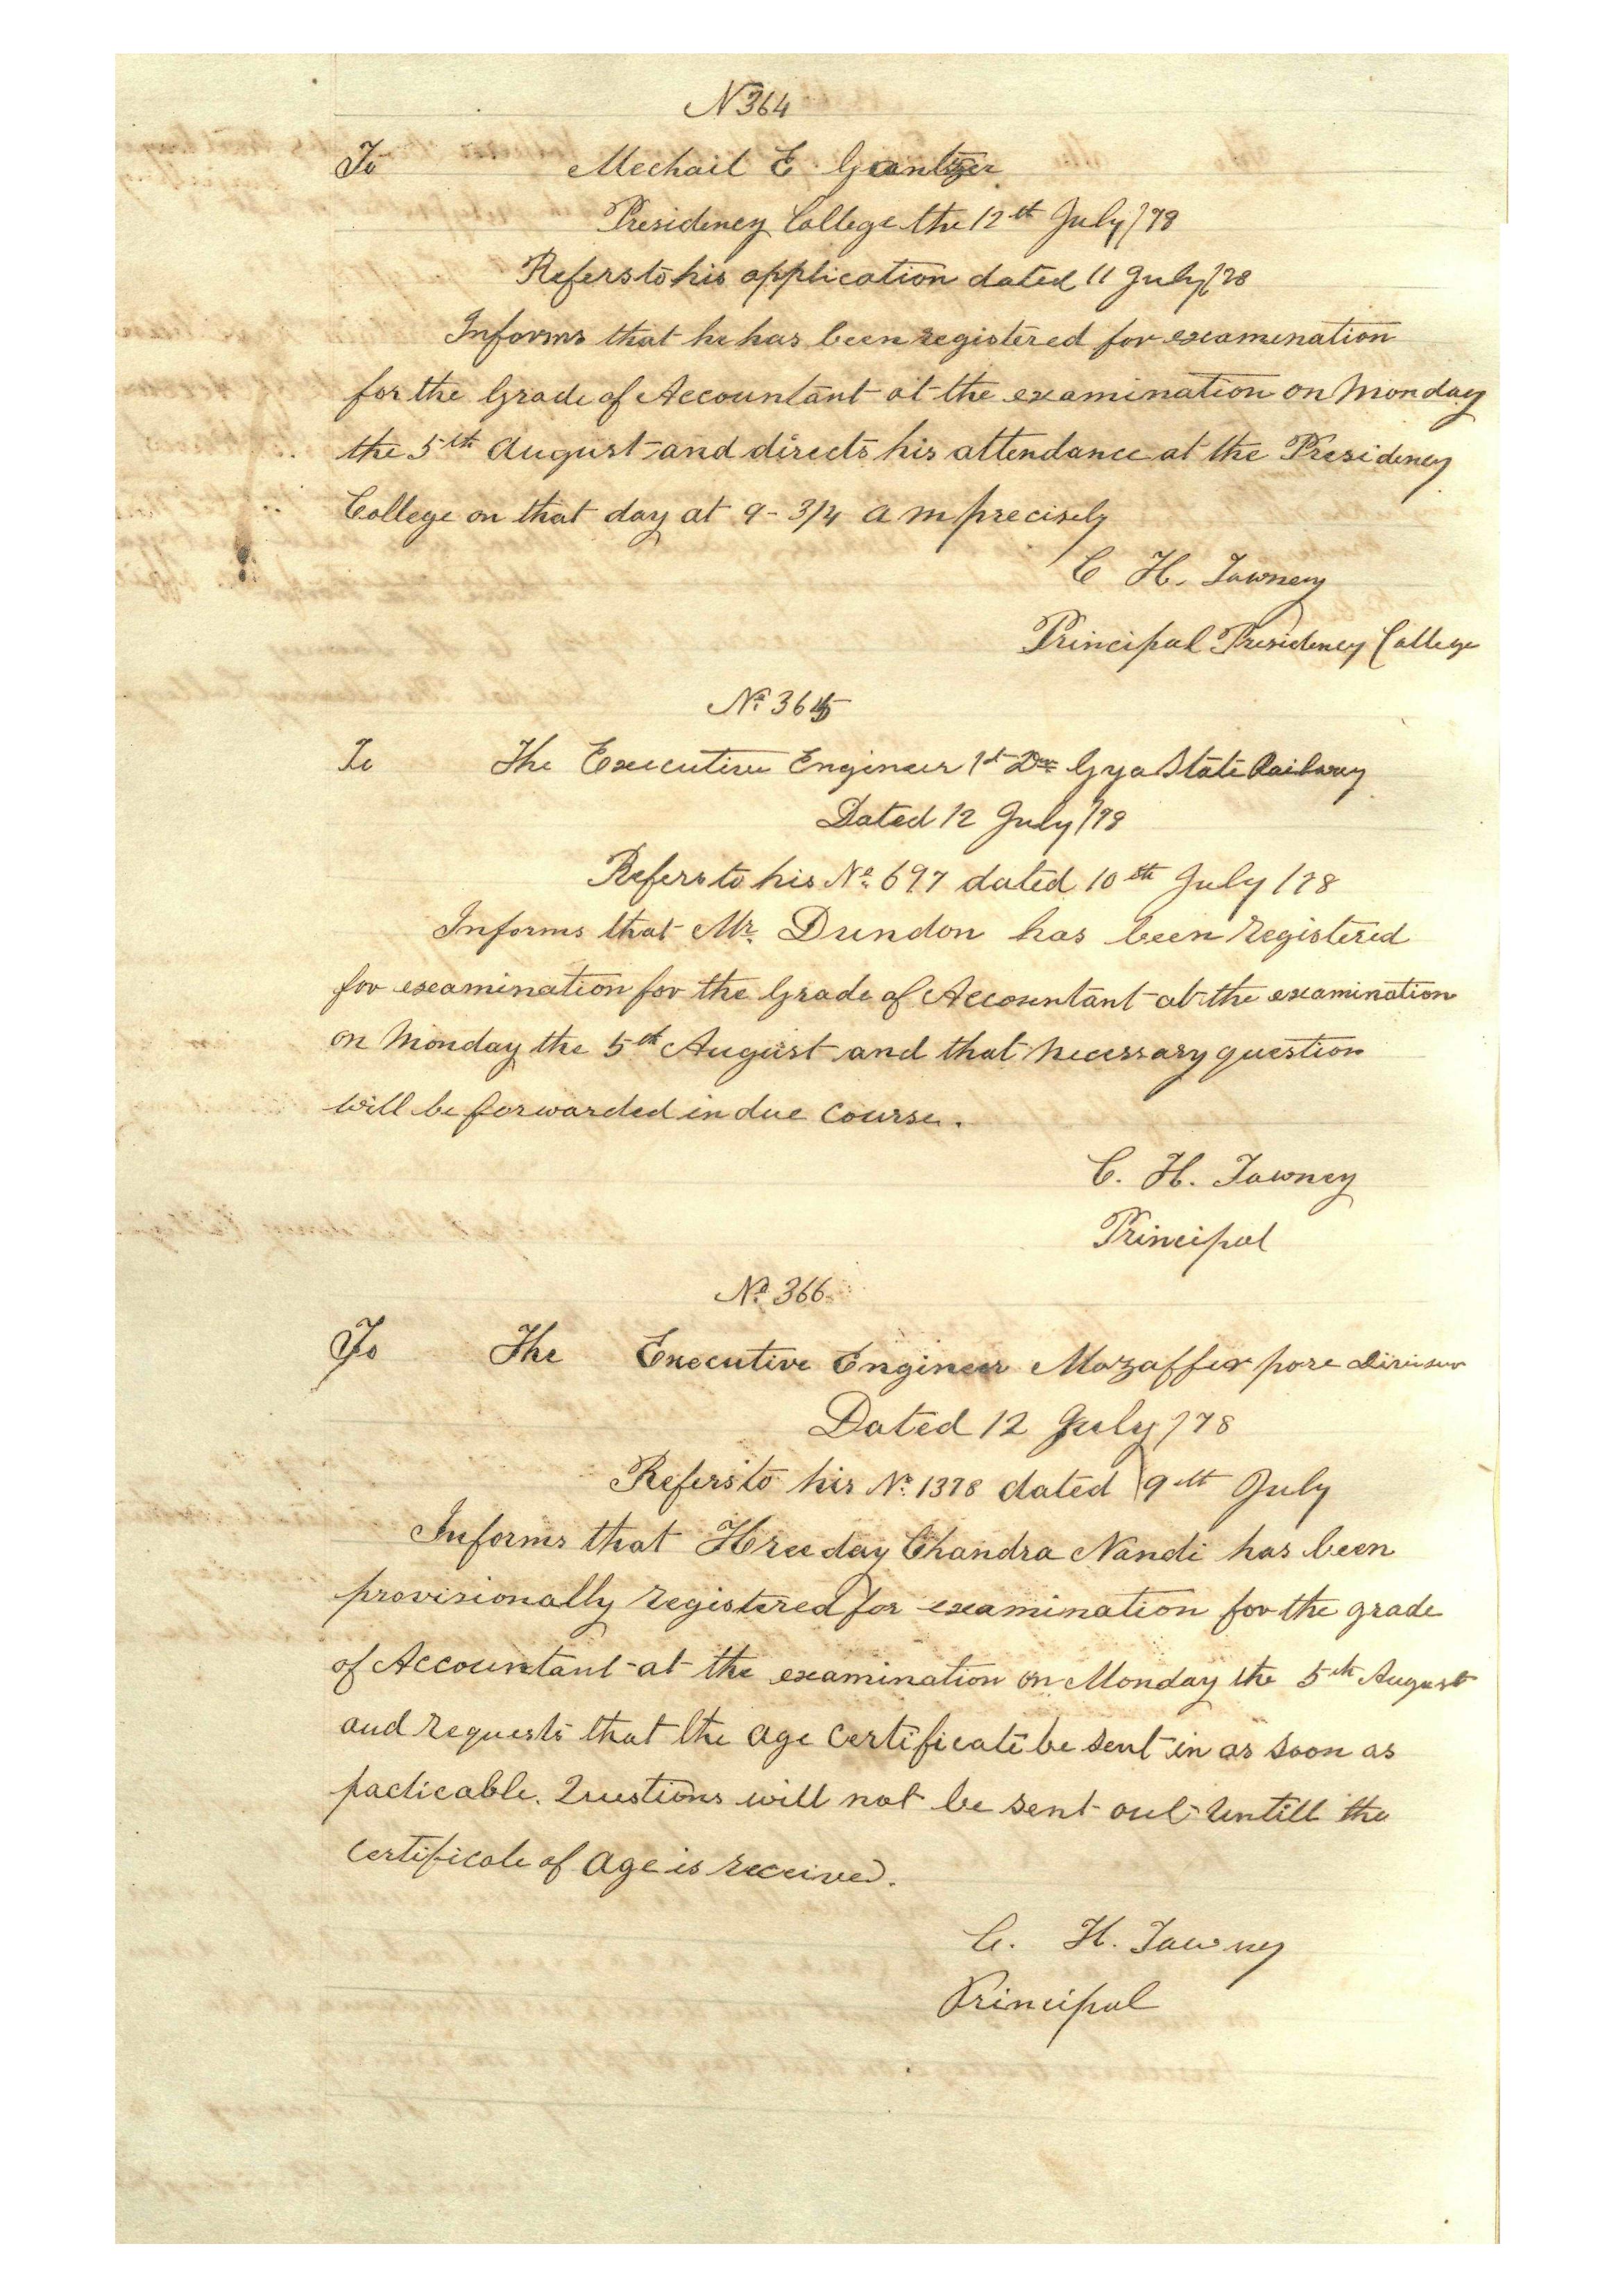 N 364
To Mechail E Gantzer
Presidency College the 12th July / 78
Refers to his application dated 11 July / 78
Informs that he has been registered for examination
for the Grade of Accountant at the examination on Monday
the 5th August and directs his attendance at the Presidency
College on that day at 9-3/4 a m precisely
C H. Tawney
Principal Presidency College
No. 365
To The Executive Engineer 1st Don Gya State Railway
Dated 12 July / 78
Refers to his No. 697 dated 10th July / 78
Informs that Mr. Dundon has been registered
for examination for the Grade of Accountant at the examination
on Monday the 5th August and that necessary question
will be forwarded in due course.
C. H. Tawney
Principal
No. 366
To The Executive Engineer Mozafferpore Division
Dated 12 July / 78
Refers to his No. 1378 dated 9th July
Informs that Hreeday Chandra Nandi has been
provisionally registered for examination for the grade
of Accountant at the examination on Monday the 5th August
and requests that the age certificate be sent in as soon as
pacticable. Questions will not be sent out untill the
certificate of age is received.
C. H. Tawney
Principal